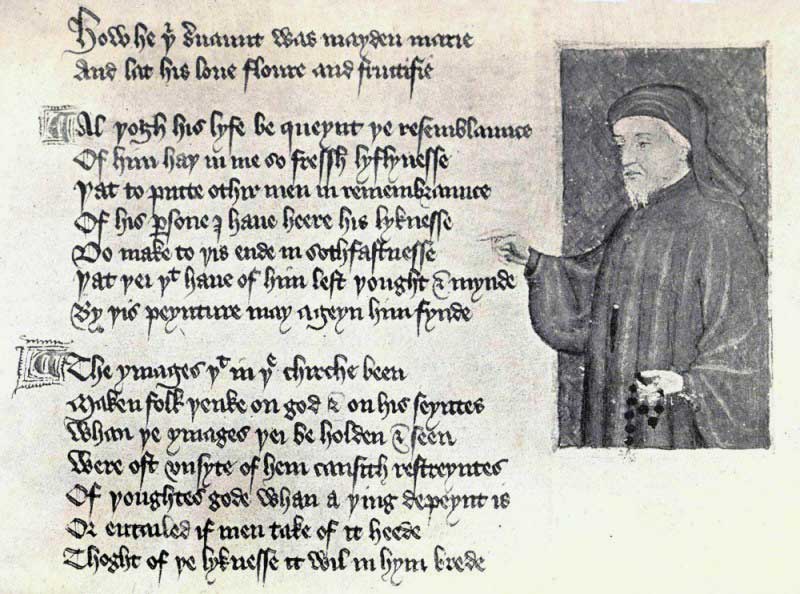 How he yͬ sͬuaunt was mayden marie
And lat his loue floure and fructifie
Al yogh his lyfe be queynt ye resemblaunce
Of him hay in me so fressh lyflynesse
Yat to putte othir men in remembraunce
Of his ꝑsone I haue heere his lyknesse
Do make to yis ende in sothfastnesse
Yat yei yͭ haue of him left yought & mynde
By yis peynture may ageyn him fynde
The ymages yͭ in yͤ chirche been
Maken folk yenke on god & on his seyntes
Whan ye ymages yei be holden & seen
Were oft vnsyte of hem causith restreyntes
Of youghtes gode whan a ying depeynt is
Or entailed if men take of it heede
Thoght of ye lyknesse it wil in hym brede